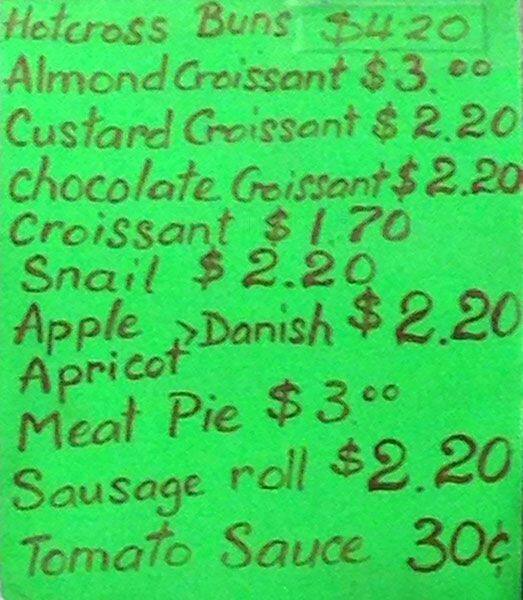 Hotcross Buns $4.20
Almond Croissant $3.00
Custard Croissant $2.20
chocolate Croissant $2.20
Croissant $1.70
Snail $2.20
Apple >Danish $2.20
Apricot
Meat Pie $3.00
Sausage roll $2.20
Tomato Sauce 30¢